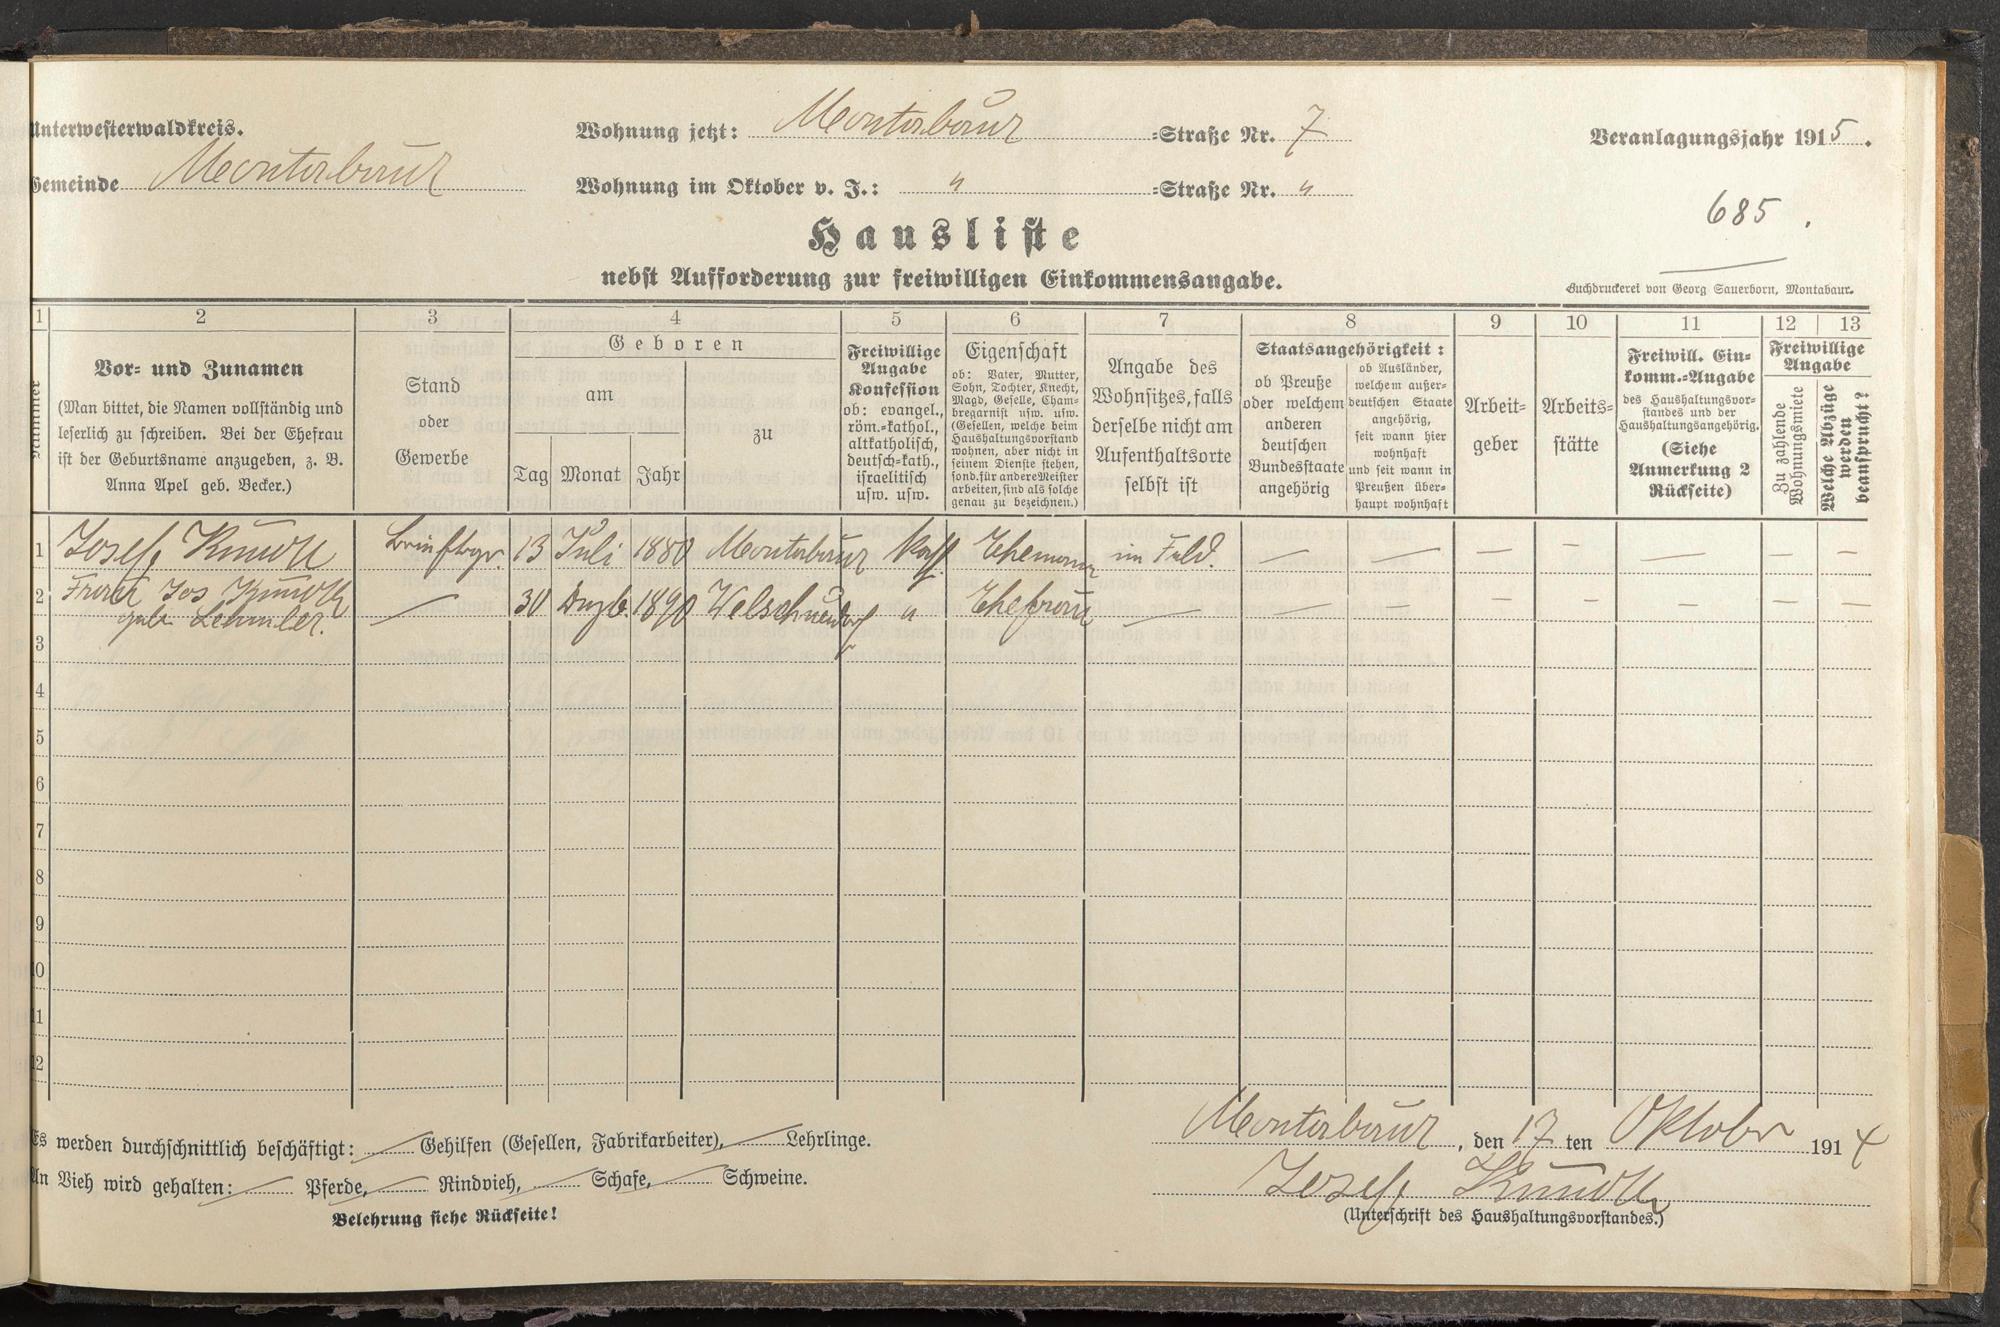 Unterwesterwaldkreis.
Gemeinde Montabaur
Wohnung jetzt: Montabaur =Straße Nr. 7
Wohnung im Oktober v. J.: " =Straße Nr. "
Veranlagungsjahr 1915.
685.
Hausliste
nebst Aufforderung zur freiwilligen Einkommensangabe.
Buchdruckerei von Georg Sauerborn, Montabaur.
1 2 3 4 5 6 7 8 9 10 11 12 13
Nummer
Vor- und Zunamen
(Man bittet, die Namen vollständig und
leserlich zu schreiben. Bei der Ehefrau
ist der Geburtsname anzugeben, z. B.
Anna Apel geb. Becker.)
Stand
oder
Gewerbe
Geboren
am
Tag Monat Jahr
zu
Freiwillige
Angabe
Konfession
ob: evangel.,
röm.-kathol.,
altkatholisch,
deutsch-kath.,
israelitisch
usw. usw.
Eigenschaft
ob: Vater, Mutter,
Sohn, Tochter, Knecht,
Magd, Geselle, Cham-
bregarnist usw. usw.
(Gesellen, welche beim
Haushaltungsvorstand
wohnen, aber nicht in
seinem Dienste stehen,
sond. für andere Meister
arbeiten, sind als solche
genau zu bezeichnen.)
Angabe des
Wohnsitzes, falls
derselbe nicht am
Aufenthaltsorte
selbst ist
Staatsangehörigkeit:
ob Preuße
oder welchem
anderen
deutschen
Bundesstaate
angehörig
ob Ausländer,
welchem außer-
deutschen Staate
angehörig,
seit wann hier
wohnhaft
und seit wann in
Preußen über-
haupt wohnhaft
Arbeit-
geber
Arbeits-
stätte
Freiwill. Ein-
komm.-Angabe
des Haushaltungsvor-
standes und der
Haushaltungsangehörig.
(Siehe
Anmerkung 2
Rückseite)
Freiwillige
Angabe
Zu zahlende
Wohnungsmiete
Welche Abzüge
werden
beansprucht?
1 Josef 13 Juli 1880 Montabaur Kath. Ehemann im Feld. — — — — — — —
2 Frau Jos
geb. Lehmler. — 30 Dezb. 1890 Welschneudorf " Ehefrau — — — — — — — —
3
4
5
6
7
8
9
10
11
12
Es werden durchschnittlich beschäftigt: — Gehilfen (Gesellen, Fabrikarbeiter), — Lehrlinge.
An Vieh wird gehalten: — Pferde, — Rindvieh, — Schafe, — Schweine.
Belehrung siehe Rückseite!
Montabaur, den 17 ten Oktober 1914
Josef
(Unterschrift des Haushaltungsvorstandes.)